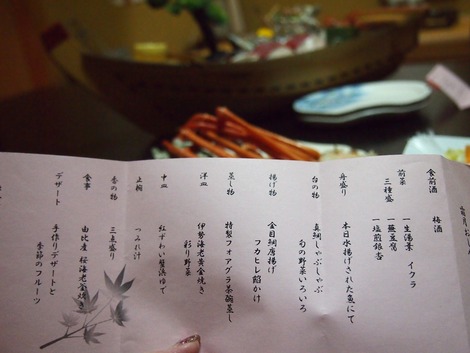 食前酒　梅酒
前菜　一生湯葉　イクラ
三種盛　一蕪豆腐
一塩煎銀杏
舟盛り　本日水揚げされた魚にて
台の物　真鯛しゃぶしゃぶ
旬の野菜いろいろ
揚げ物　金目鯛唐揚げ
フカヒレ餡かけ
蒸し物　特製フォアグラ茶碗蒸し
洋皿　伊勢海老黄金焼き
彩り野菜
中皿　紅ずわい蟹浜ゆで
止椀　つみれ汁
香の物　三点盛り
食事　由比産　桜海老釜焼き
デザート　手作りデザートと
季節のフルーツ